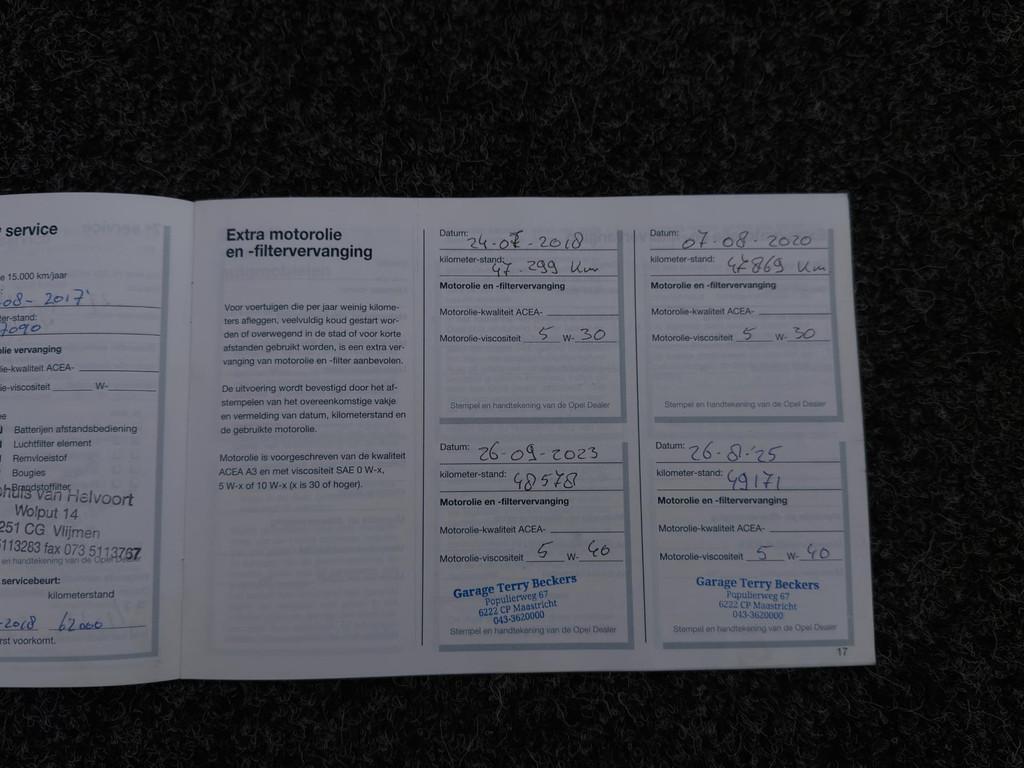 service
15.000 km/jaar
08- 2017
er-stand:
7090
lie vervanging
e-kwaliteit ACEA-
e-viscositeit W-
Batterijen afstandsbediening
Luchtfilter element
Remvloeistof
Bougies
Brandstoffilter
huis van Helvoort
Wolput 14
251 CG Vlijmen
5113283 fax 073 5113767
en handtekening van de Opel Dealer
servicebeurt:
kilometerstand
-2018 62000
rst voorkomt.
Extra motorolie
en -filtervervanging
Voor voertuigen die per jaar weinig kilome-
ters afleggen, veelvuldig koud gestart wor-
den of overwegend in de stad of voor korte
afstanden gebruikt worden, is een extra ver-
vanging van motorolie en -filter aanbevolen.
De uitvoering wordt bevestigd door het af-
stempelen van het overeenkomstige vakje
en vermelding van datum, kilometerstand en
de gebruikte motorolie.
Motorolie is voorgeschreven van de kwaliteit
ACEA A3 en met viscositeit SAE 0 W-x,
5 W-x of 10 W-x (x is 30 of hoger).
Datum: 24-07-2018
kilometer-stand: 47.299 Km
Motorolie en -filtervervanging
Motorolie-kwaliteit ACEA-
Motorolie-viscositeit 5 W- 30
Stempel en handtekening van de Opel Dealer
Datum: 07-08-2020
kilometer-stand: 47869 Km
Motorolie en -filtervervanging
Motorolie-kwaliteit ACEA-
Motorolie-viscositeit 5 W- 30
Stempel en handtekening van de Opel Dealer
Datum: 26-09-2023
kilometer-stand: 48578
Motorolie en -filtervervanging
Motorolie-kwaliteit ACEA-
Motorolie-viscositeit 5 W- 40
Garage Terry Beckers
Populierweg 67
6222 CP Maastricht
043-3620000
Stempel en handtekening van de Opel Dealer
Datum: 26-8-'25
kilometer-stand: 49171
Motorolie en -filtervervanging
Motorolie-kwaliteit ACEA-
Motorolie-viscositeit 5 W- 40
Garage Terry Beckers
Populierweg 67
6222 CP Maastricht
043-3620000
Stempel en handtekening van de Opel Dealer
17